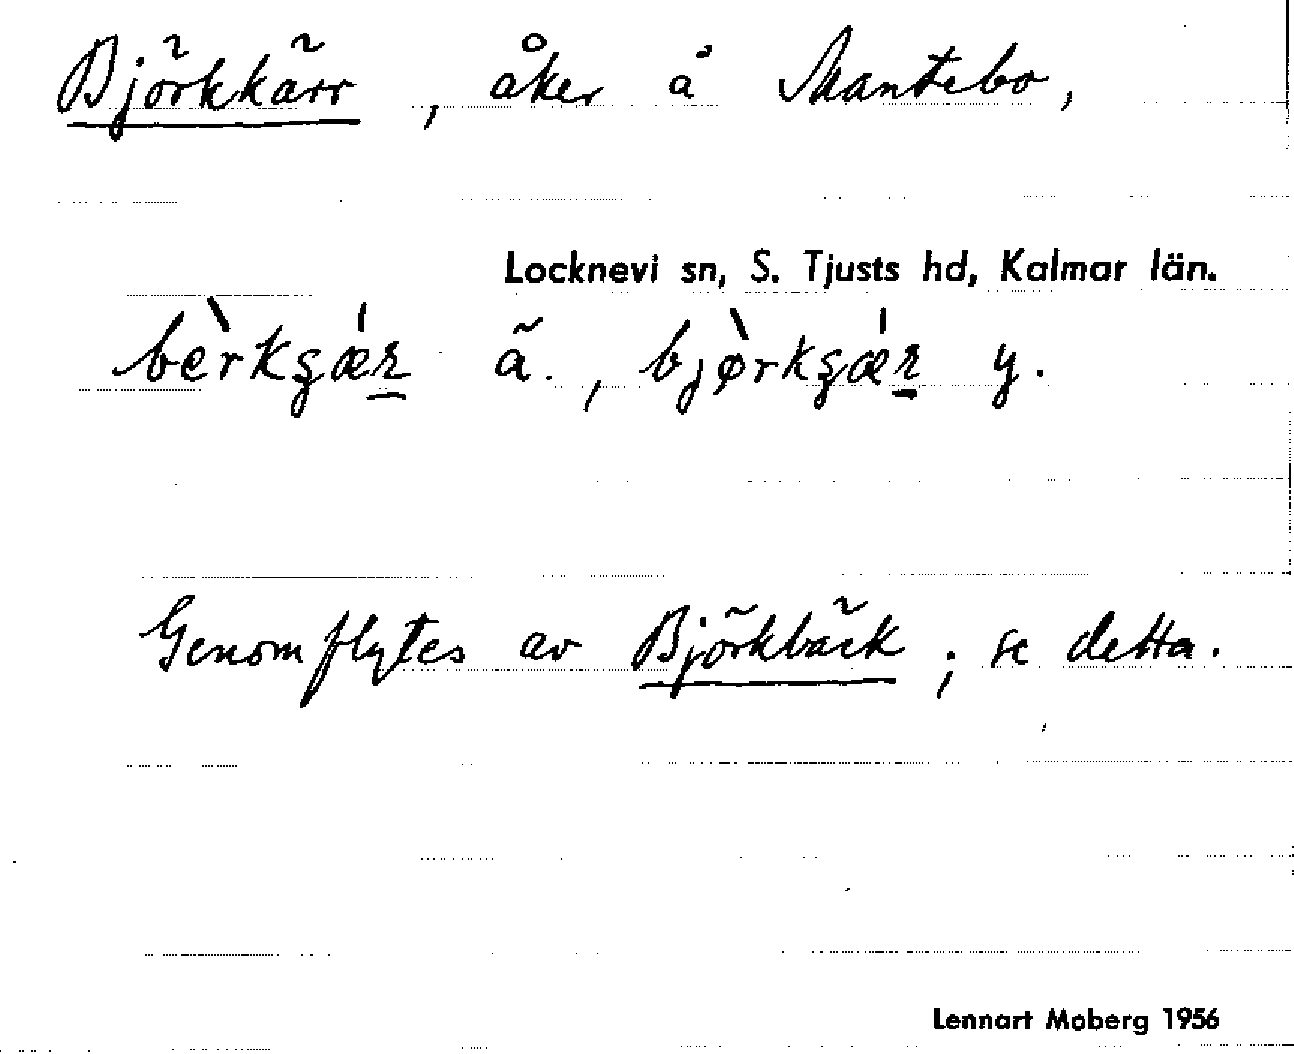 Björkkärr, åker å Mantebo,
Locknevi sn, S. Tjusts hd, Kalmar län.
bèrkʓǽr ä., bjø̀rkʓǽr y.
Genomflytes av Björkbäck; se detta.
Lennart Moberg 1956